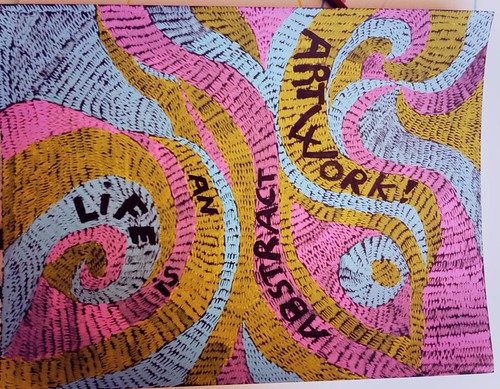 LiFE
iS
AN
ABSTRACT
ARTWORK!